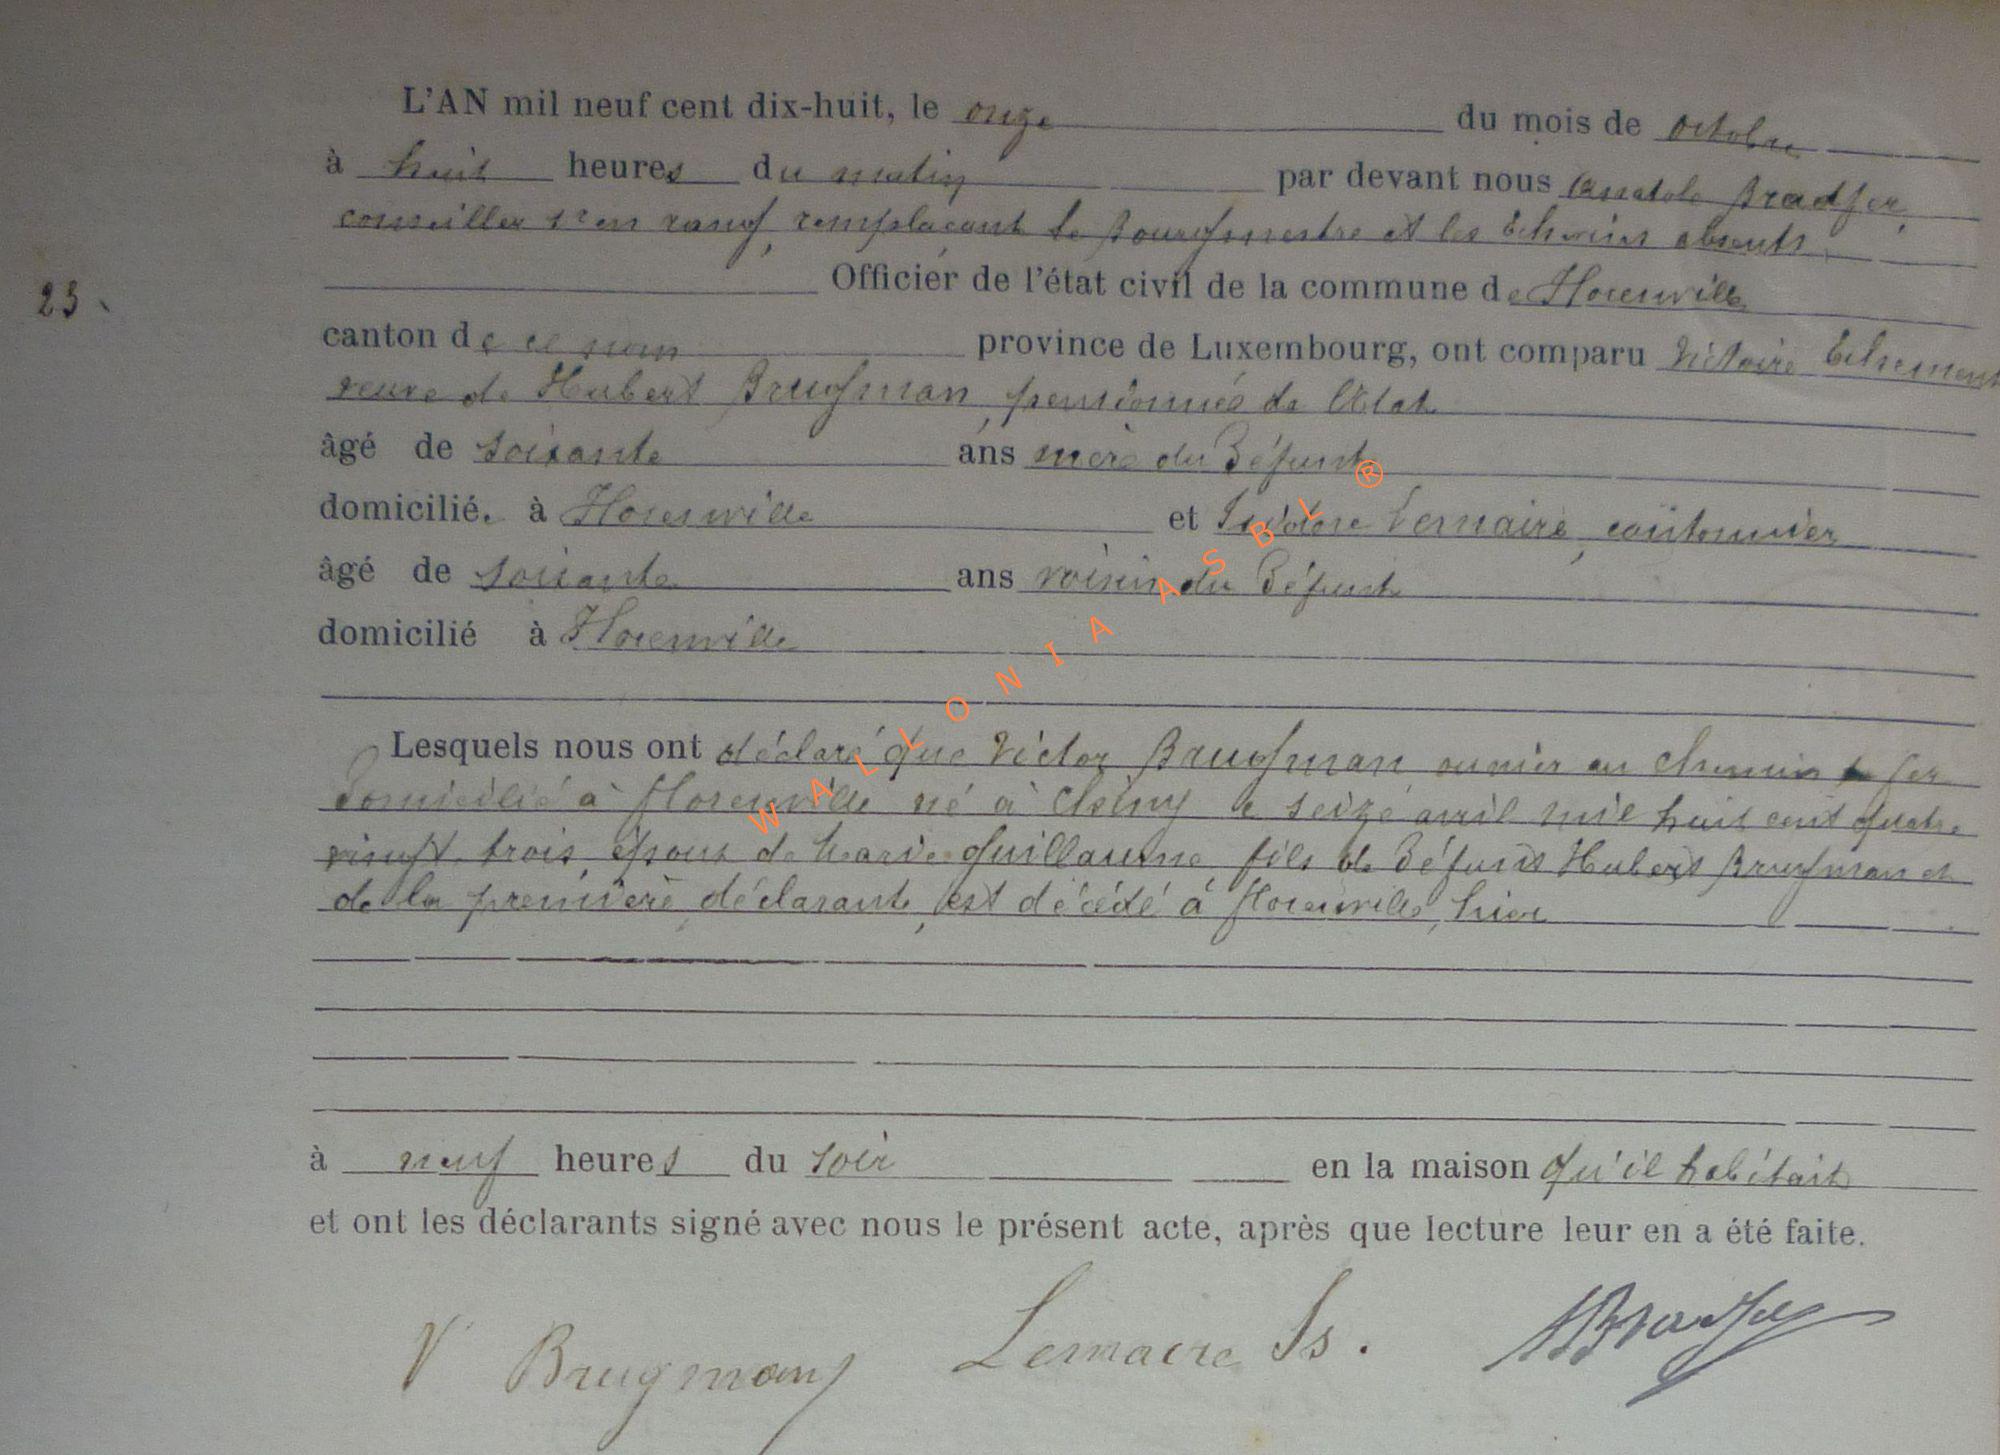 L'AN mil neuf cent dix-huit, le onze du mois de octobre
à huit heures du matin par devant nous Anatole Bradfer,
conseiller 1er en rang, remplaçant le Bourgmestre et les Echevins absents,
Officier de l'état civil de la commune de Florenville
23
canton de ce nom province de Luxembourg, ont comparu Victoire
veuve de Hubert Brugman, pensionnée de l'Etat
âgé de soixante ans mère du Défunt
domiciliée à Florenville et Isidore Lemaire, cantonnier
âgé de soixante ans voisin du Défunt
domicilié à Florenville
WALLONIA ASBL ®
Lesquels nous ont déclaré que Victor Brugman ouvrier au chemin de fer
Domicilié à Florenville né à Chiny le seize avril mil huit cent quatre
vingt trois, époux de Marie Guillaume, fils de Défunt Hubert Brugman et
de la première déclarante, est décédé à Florenville, hier
à neuf heures du soir en la maison qu'il habitait
et ont les déclarants signé avec nous le présent acte, après que lecture leur en a été faite.
V Brugman Lemaire Is. ABradfer